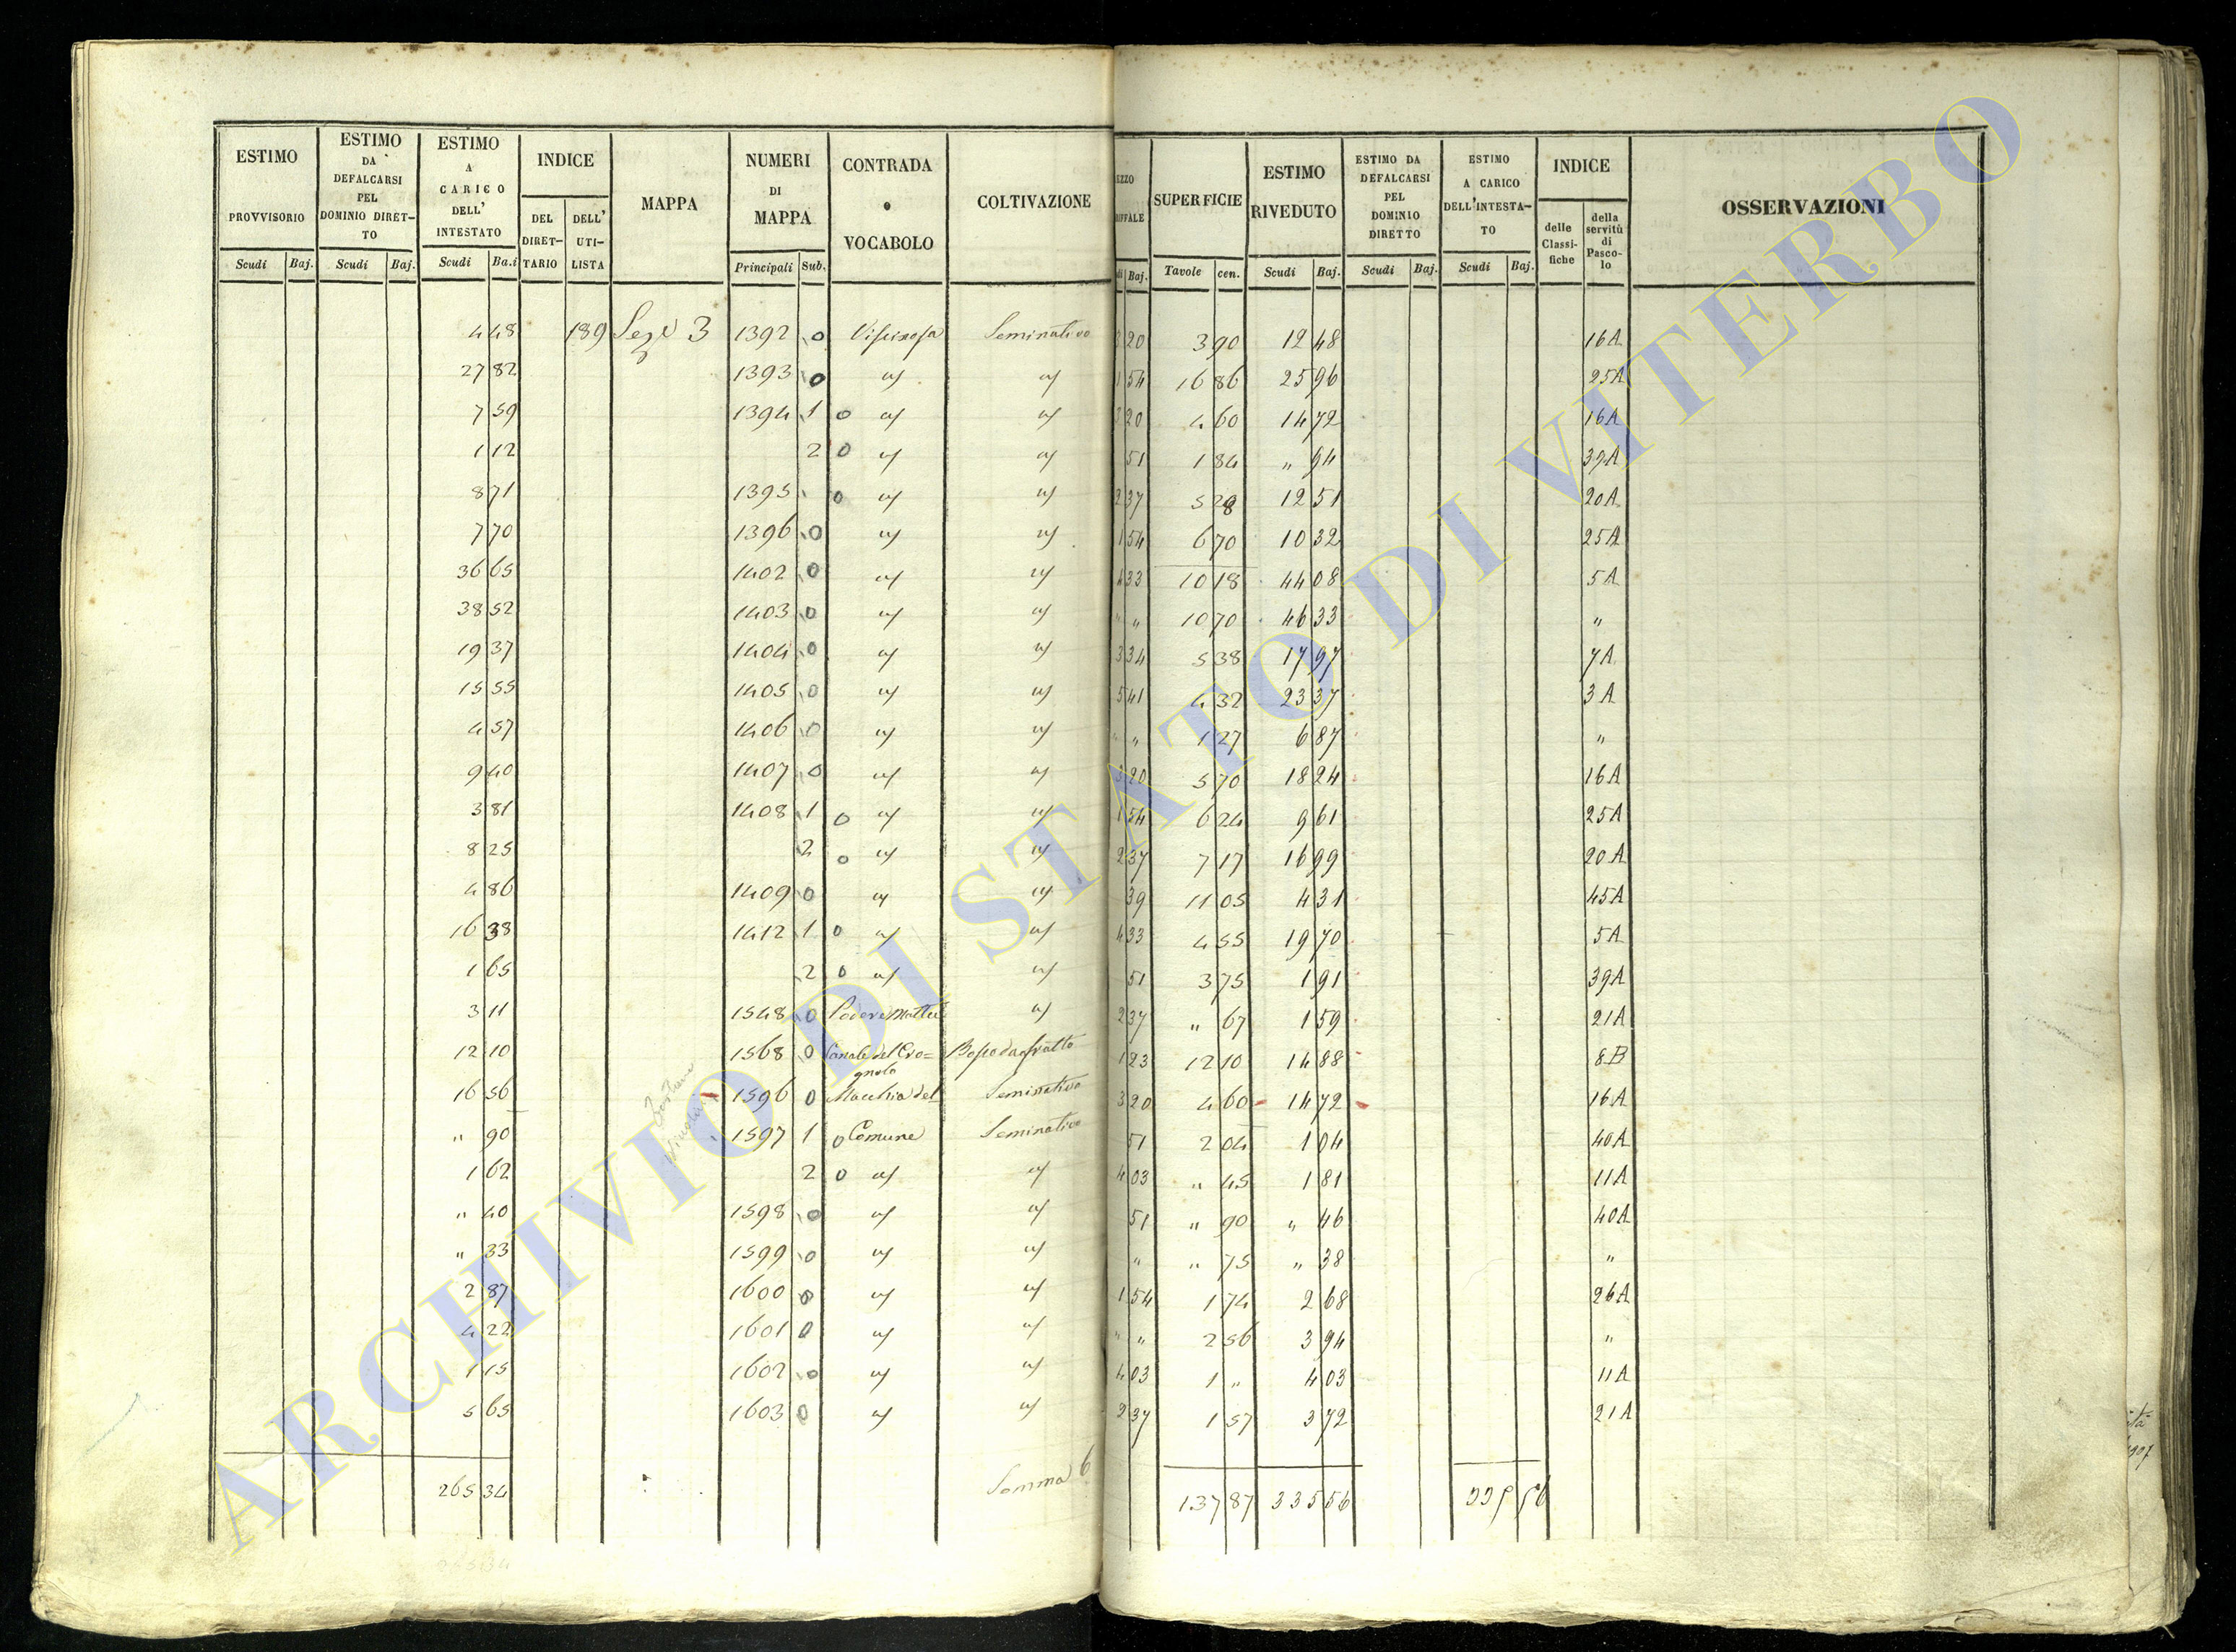 ESTIMO PROVVISORIO Scudi Baj.
ESTIMO DA DEFALCARSI PEL DOMINIO DIRETTO Scudi Baj.
ESTIMO A CARICO DELL' INTESTATO Scudi Ba.i
INDICE DEL DIRET-TARIO DELL' UTI-LISTA
MAPPA
NUMERI DI MAPPA Principali Sub.
CONTRADA o VOCABOLO
COLTIVAZIONE
SUPERFICIE Tavole cen.
ESTIMO RIVEDUTO Scudi Baj.
ESTIMO DA DEFALCARSI PEL DOMINIO DIRETTO Scudi Baj.
ESTIMO A CARICO DELL'INTESTA-TO Scudi Baj.
INDICE delle Classi-fiche della servitù di Pasco-lo
OSSERVAZIONI
4 48 189 Sez. 3 1392 0 Seminativo 3 20 3 90 12 48 16A
27 82 1393 0 1 54 16 86 25 96 25A
7 59 1394 1 0 3 20 4 60 14 72 16A
1 12 2 0 51 1 84 " 94 39A
8 71 1395 0 2 37 5 28 12 51 20A
7 70 1396 0 1 54 6 70 10 32 25A
36 65 1402 0 4 33 10 18 44 08 5A
38 52 1403 0 " " 10 70 46 33 "
19 37 1404 0 3 34 5 38 17 97 7A
15 55 1405 0 5 41 4 32 23 37 3A
4 57 1406 0 " " 1 27 6 87 "
9 40 1407 0 3 20 5 70 18 24 16A
3 81 1408 1 0 1 54 6 24 9 61 25A
8 25 2 0 2 37 7 17 16 99 20A
4 86 1409 0 39 11 05 4 31 45A
16 38 1412 1 0 4 33 4 55 19 70 5A
1 65 2 0 51 3 75 1 91 39A
3 11 1548 0 Podere Mattei 2 37 " 67 1 59 21A
12 10 1568 0 Canale del Cro=gnolo Bosco da frutto 1 23 12 10 14 88 8B
16 56 1596 0 Macchia del Seminativo 3 20 4 60 14 72 16A
" 90 1597 1 0 Comune Seminativo 51 2 04 1 04 40A
1 62 2 0 4 03 " 45 1 81 11A
" 40 1598 0 51 " 90 " 46 40A
" 33 1599 0 " " 75 " 38 "
2 87 1600 0 1 54 1 74 2 68 26A
4 22 1601 0 " " 2 56 3 94 "
1 15 1602 0 4 03 1 " 4 03 11A
5 65 1603 0 2 37 1 57 3 72 21A
265 34 Somma 6 137 87 335 56
ARCHIVIO DI STATO DI VITERBO